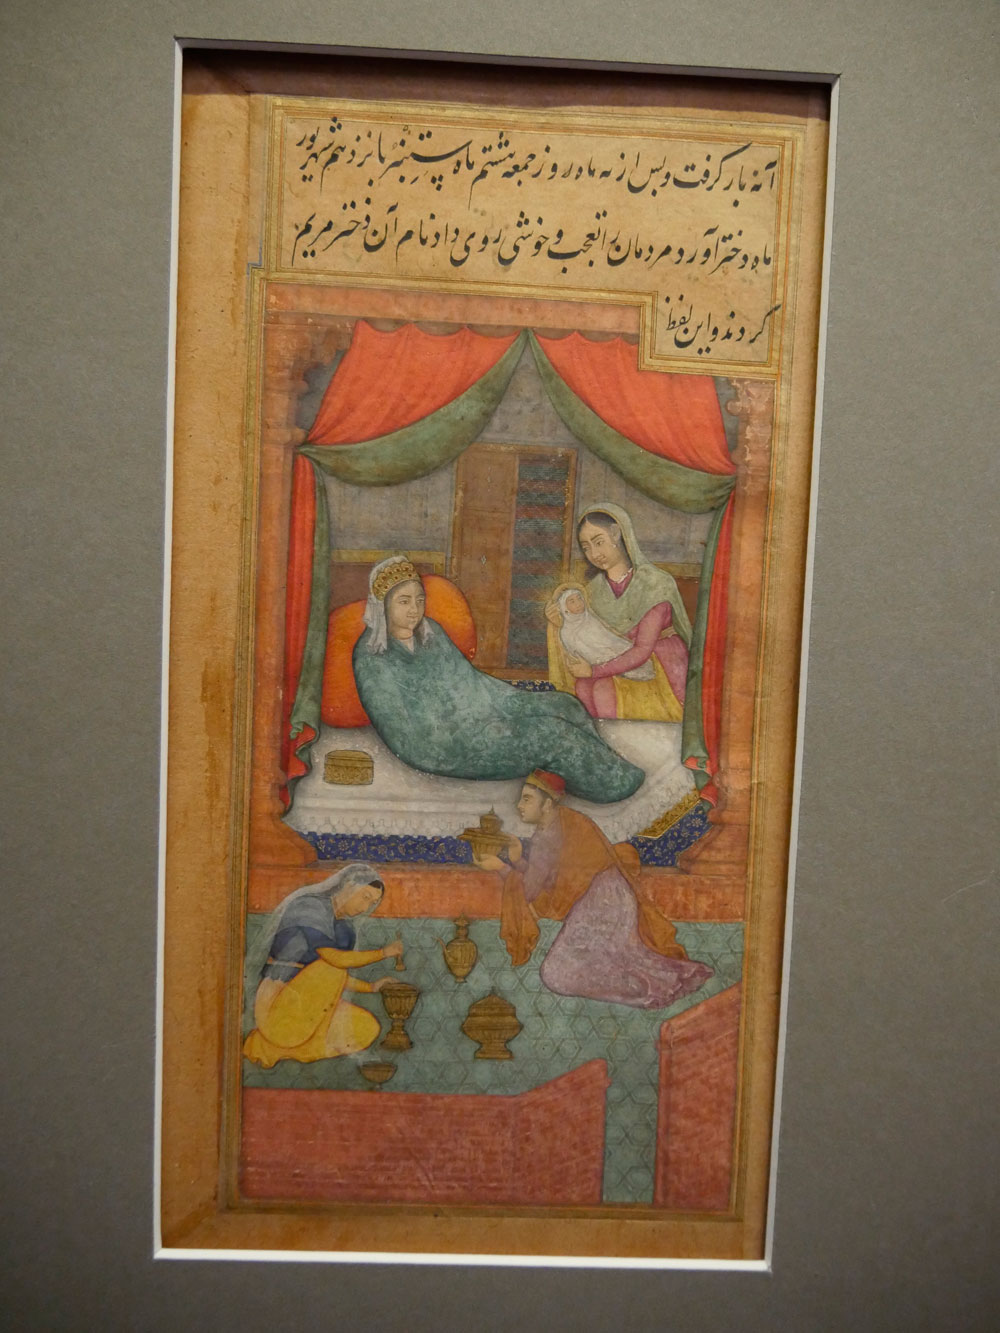 آنه بار گرفت و پس از نه ماه روز جمعه هشتم ماه ستنبر پانزدهم شهریور
ماه دختر آورد مردمان را تعجب و خوشی روی داد نام آن دختر مریم
کردند و این لفظ